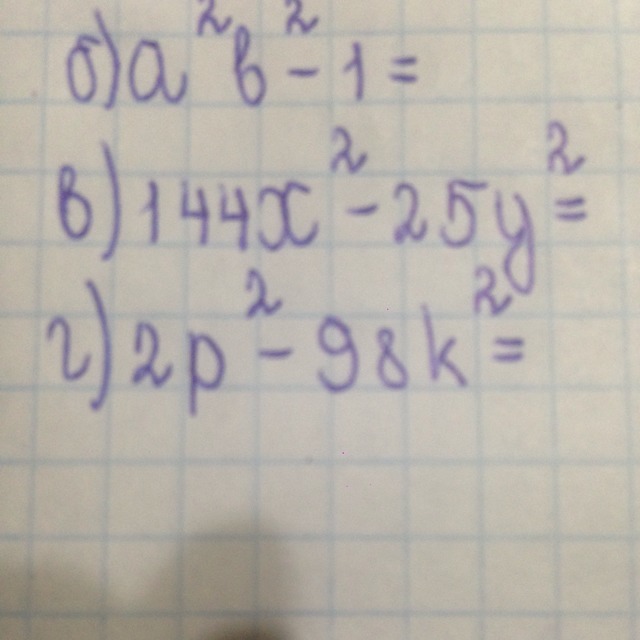 б) a²b² - 1 =
в) 144x² - 25y² =
г) 2p² - 98k² =